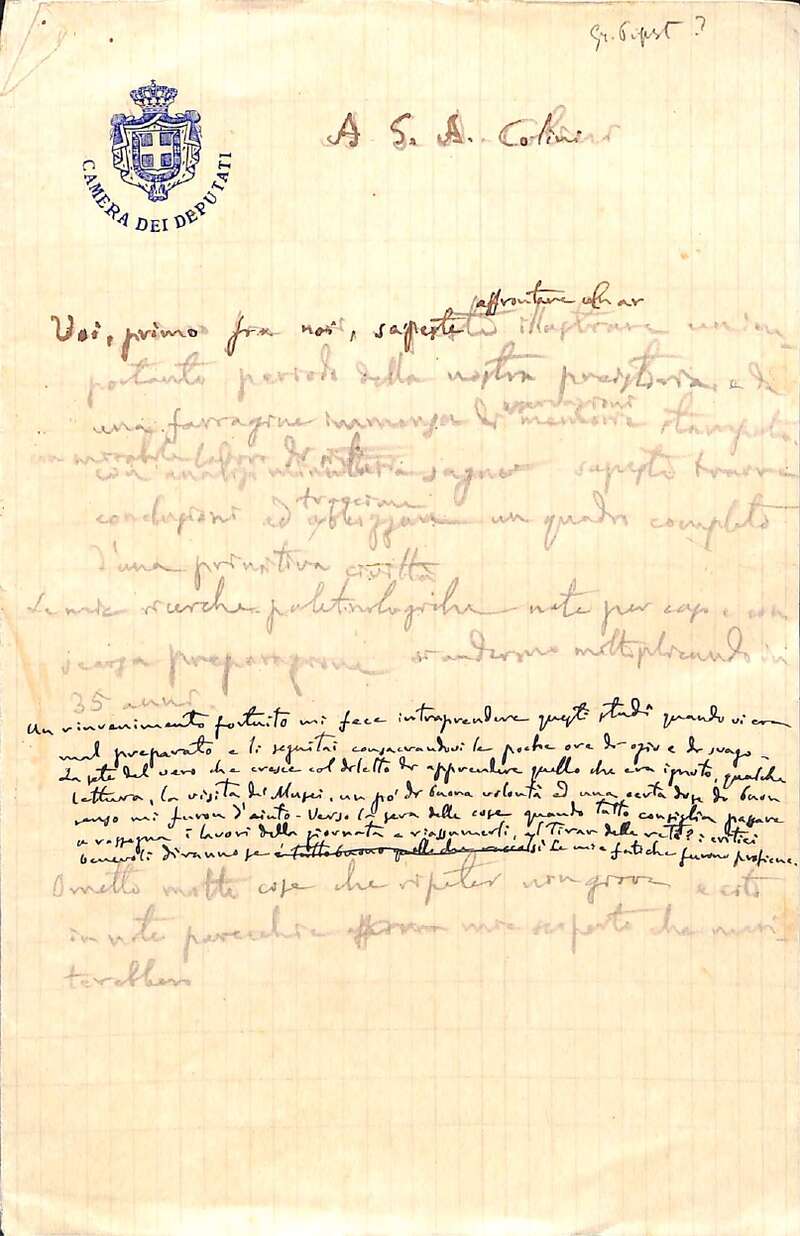 CAMERA DEI DEPUTATI
A G. A. Colini
affrontare
Voi, primo fra noi, sapeste illustrare un im-
portante periodo della nostra preistoria, e da
una farragine immensa di memorie stampate,
sapeste trarre
tracciare
conclusioni ed abbozzare un quadro completo
d'una primitiva civiltà
Le mie ricerche paletnologiche nate per caso e con
scarsa preparazione si andarono moltiplicando in
35 anni.
Un rinvenimento fortuito mi fece intraprendere questi studî quando vi ero
mal preparato e li seguitai consacrandovi le poche ore di ozio e di svago -
La sete del vero che cresce col diletto di apprendere quello che era ignoto, qualche
lettura, la visita dei Musei, un pó di buona volontà ed una certa dose di buon
senso mi furon d'aiuto - Verso la sera delle cose quando tutto consiglia passare
a rassegna i lavori della giornata e riassumerli, al tirar delle reti? i critici
benevoli diranno se è tutto buono quello che raccolsi le mie fatiche furono proficue.
Ometto molte cose che ripeter non giova e cito
in note parecchie mie scoperte che meri-
terebbero